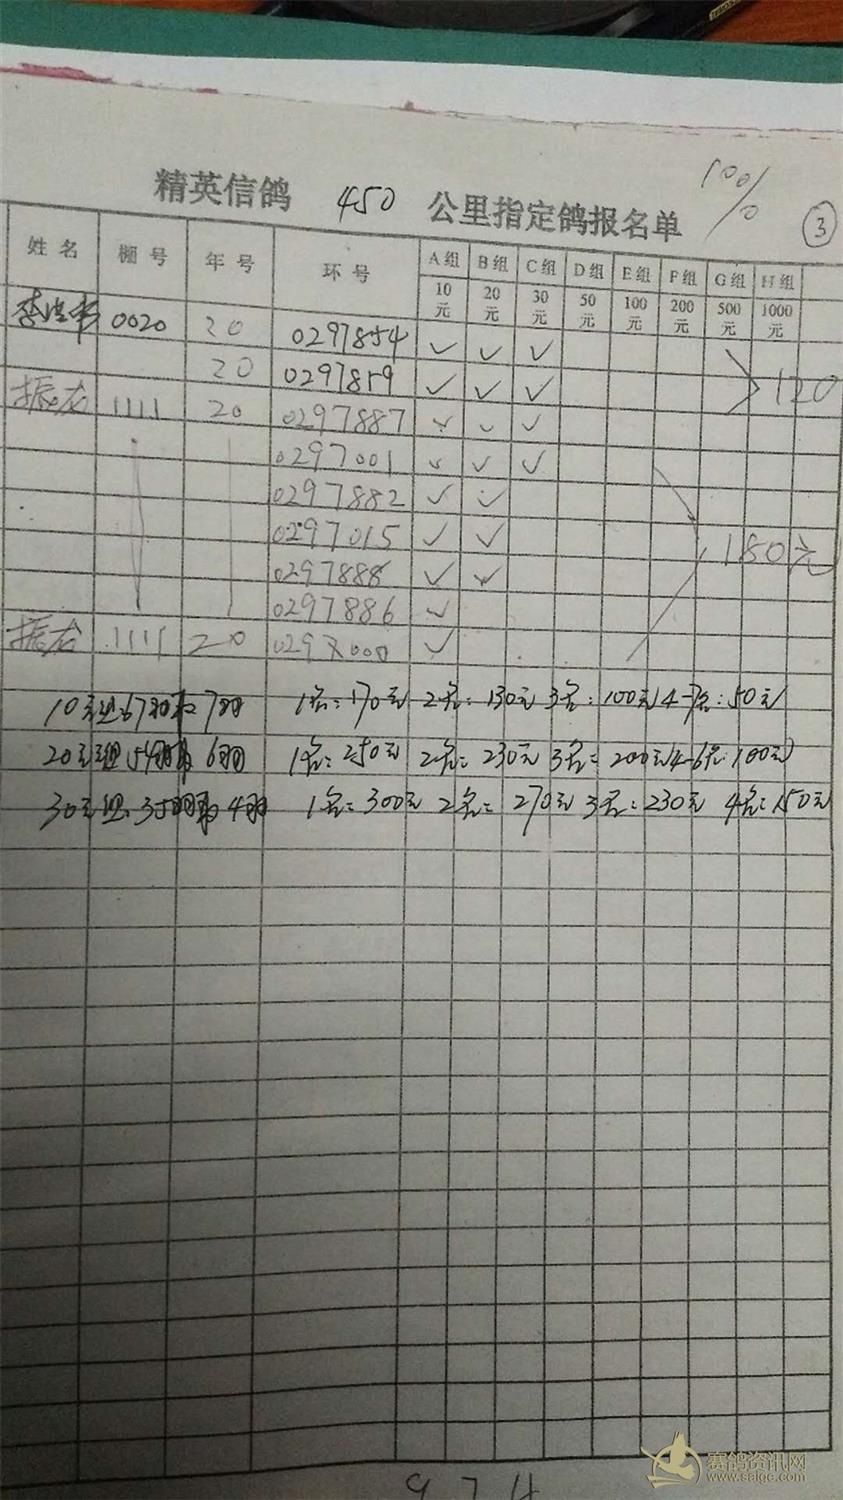 100%
精英信鸽 450 公里指定鸽报名单 ③
姓名 棚号 年号 环号 A组 B组 C组 D组 E组 F组 G组 H组
10元 20元 30元 50元 100元 200元 500元 1000元
0020 20 0297854 ✓ ✓ ✓
20 0297859 ✓ ✓ ✓ 120
振龙 1111 20 0297887 ✓ ✓ ✓
0297001 ✓ ✓ ✓
0297882 ✓ ✓
0297015 ✓ ✓ 180元
0297888 ✓ ✓
0297886 ✓
振龙 1111 20 0297000 ✓
10元组:67羽取7羽 1名:170元 2名:130元 3名:100元 4-7名:50元
20元组:54羽取6羽 1名:250元 2名:230元 3名:200元 4-6名:100元
30元组:35羽取4羽 1名:300元 2名:270元 3名:230元 4名:150元
赛鸽资讯网
www.saige.com